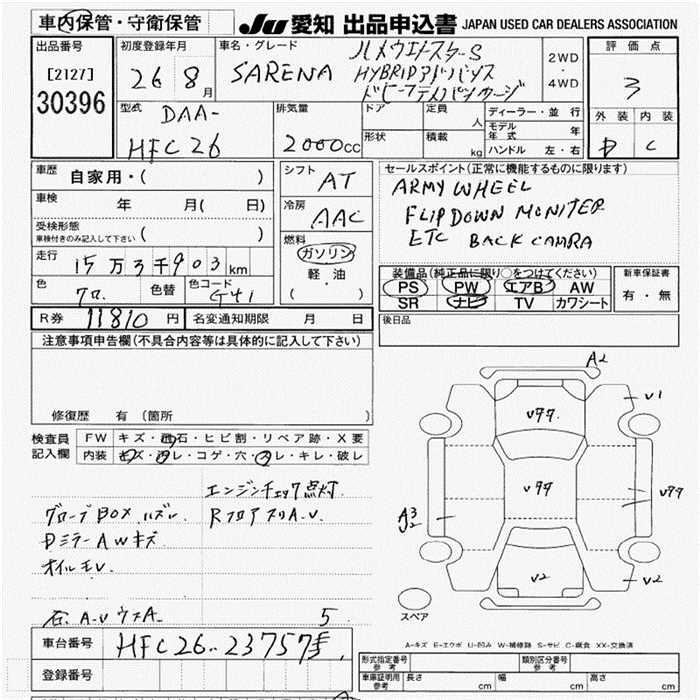 車内保管・守衛保管
JU 愛知 出品申込書 JAPAN USED CAR DEALERS ASSOCIATION
出品番号
[2127]
30396
初度登録年月
26 8 月
車名・グレード
SARENA
HYBRID
2WD
・
4WD
評価点
3
外装 内装
D C
型式
DAA-
HFC26
排気量
2000cc
ドア
形状
定員 人
積載 kg
ディーラー・並行
モデル年式 年
ハンドル 左・右
車歴 自家用・( )
車検 年 月( 日)
受検形態
車検付きのみ記入して下さい ( )
走行 15万3千903km
色 クロ
色替
色コード G41
シフト AT
冷房 AAC
燃料
ガソリン
軽・油
( )
セールスポイント(正常に機能するものに限ります)
ARMY WHEEL
FLIP DOWN MONITER
ETC BACK CAMRA
装備品(純正品に限り○をつけてください)
PS PW エアB AW
SR ナビ TV カワシート
新車保証書
有・無
R券 11810 円
名変通知期限 月 日
後日品
注意事項申告欄(不具合内容等は具体的に記入して下さい)
修復歴 有(箇所
検査員記入欄
FW キズ・飛石・ヒビ割・リペア跡・X要
内装 キズ・汚レ・コゲ・穴・スレ・キレ・破レ
エンジンチェック点灯
グローブBOX ハズレ
RフロアスリA-U
DミラーAWキズ
オイルモレ
5
A2
U1
U99
A3
U2
スペア
A-キズ E-エクボ U-凹み W-補修跡 S-サビ C-腐食 XX-交換済
車台番号 HFC26-237573
登録番号
形式指定番号 参考
類別区分番号 参考
車庫証明用 参考
長さ cm
幅 cm
高さ cm